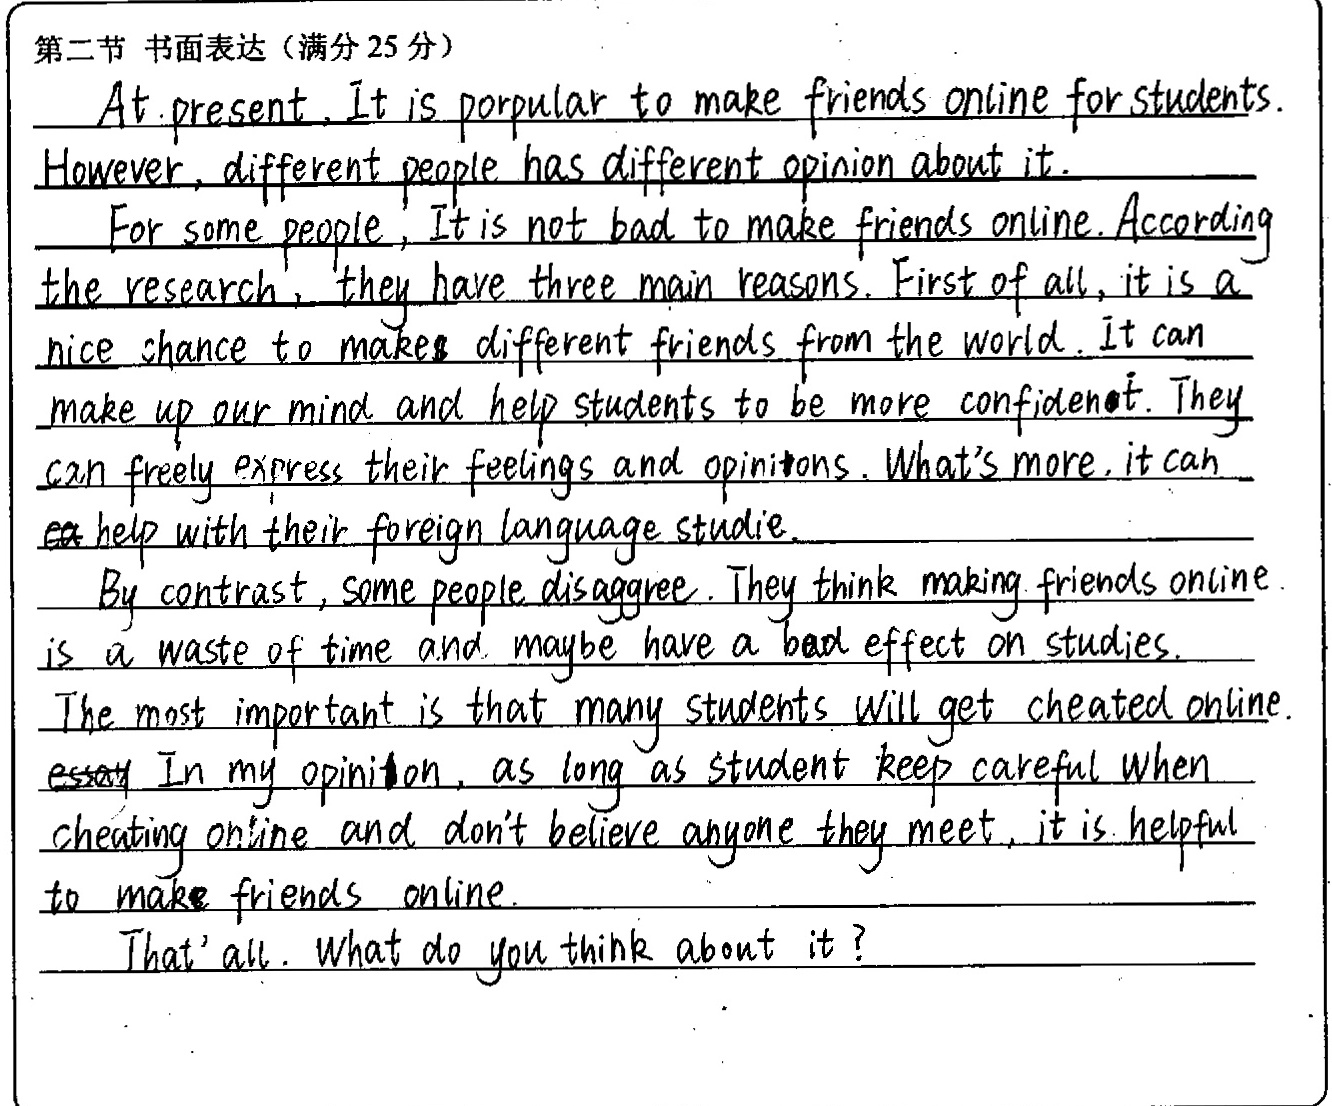 第二节 书面表达（满分 25 分）
At present, It is porpular to make friends online for students.
However, different people has different opinion about it.
For some people, It is not bad to make friends online. According
the research, they have three main reasons. First of all, it is a
nice chance to make different friends from the world. It can
make up our mind and help students to be more confident. They
can freely express their feelings and opinitons. What's more, it can
help with their foreign language studie.
By contrast, some people disaggree. They think making friends online
is a waste of time and maybe have a bad effect on studies.
The most important is that many students will get cheated online.
In my opinition, as long as student keep careful when
cheating online and don't believe anyone they meet, it is helpful
to make friends online.
That' all. What do you think about it?